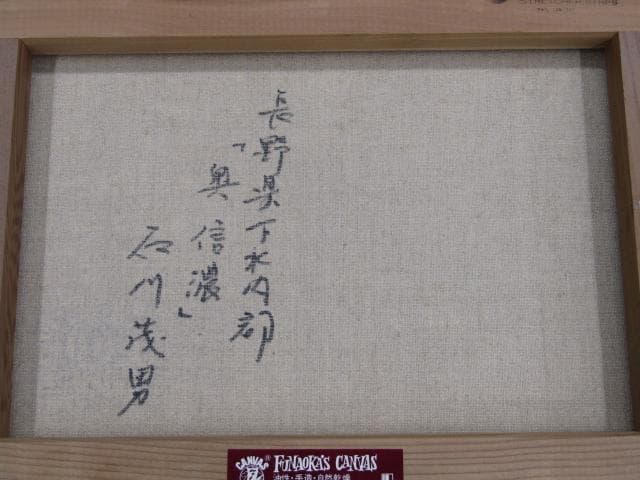 長野県下水内郡
「奥信濃」
石川茂男
FUNAOKA'S CANVAS
油性・手造・自然乾燥
CANVAS